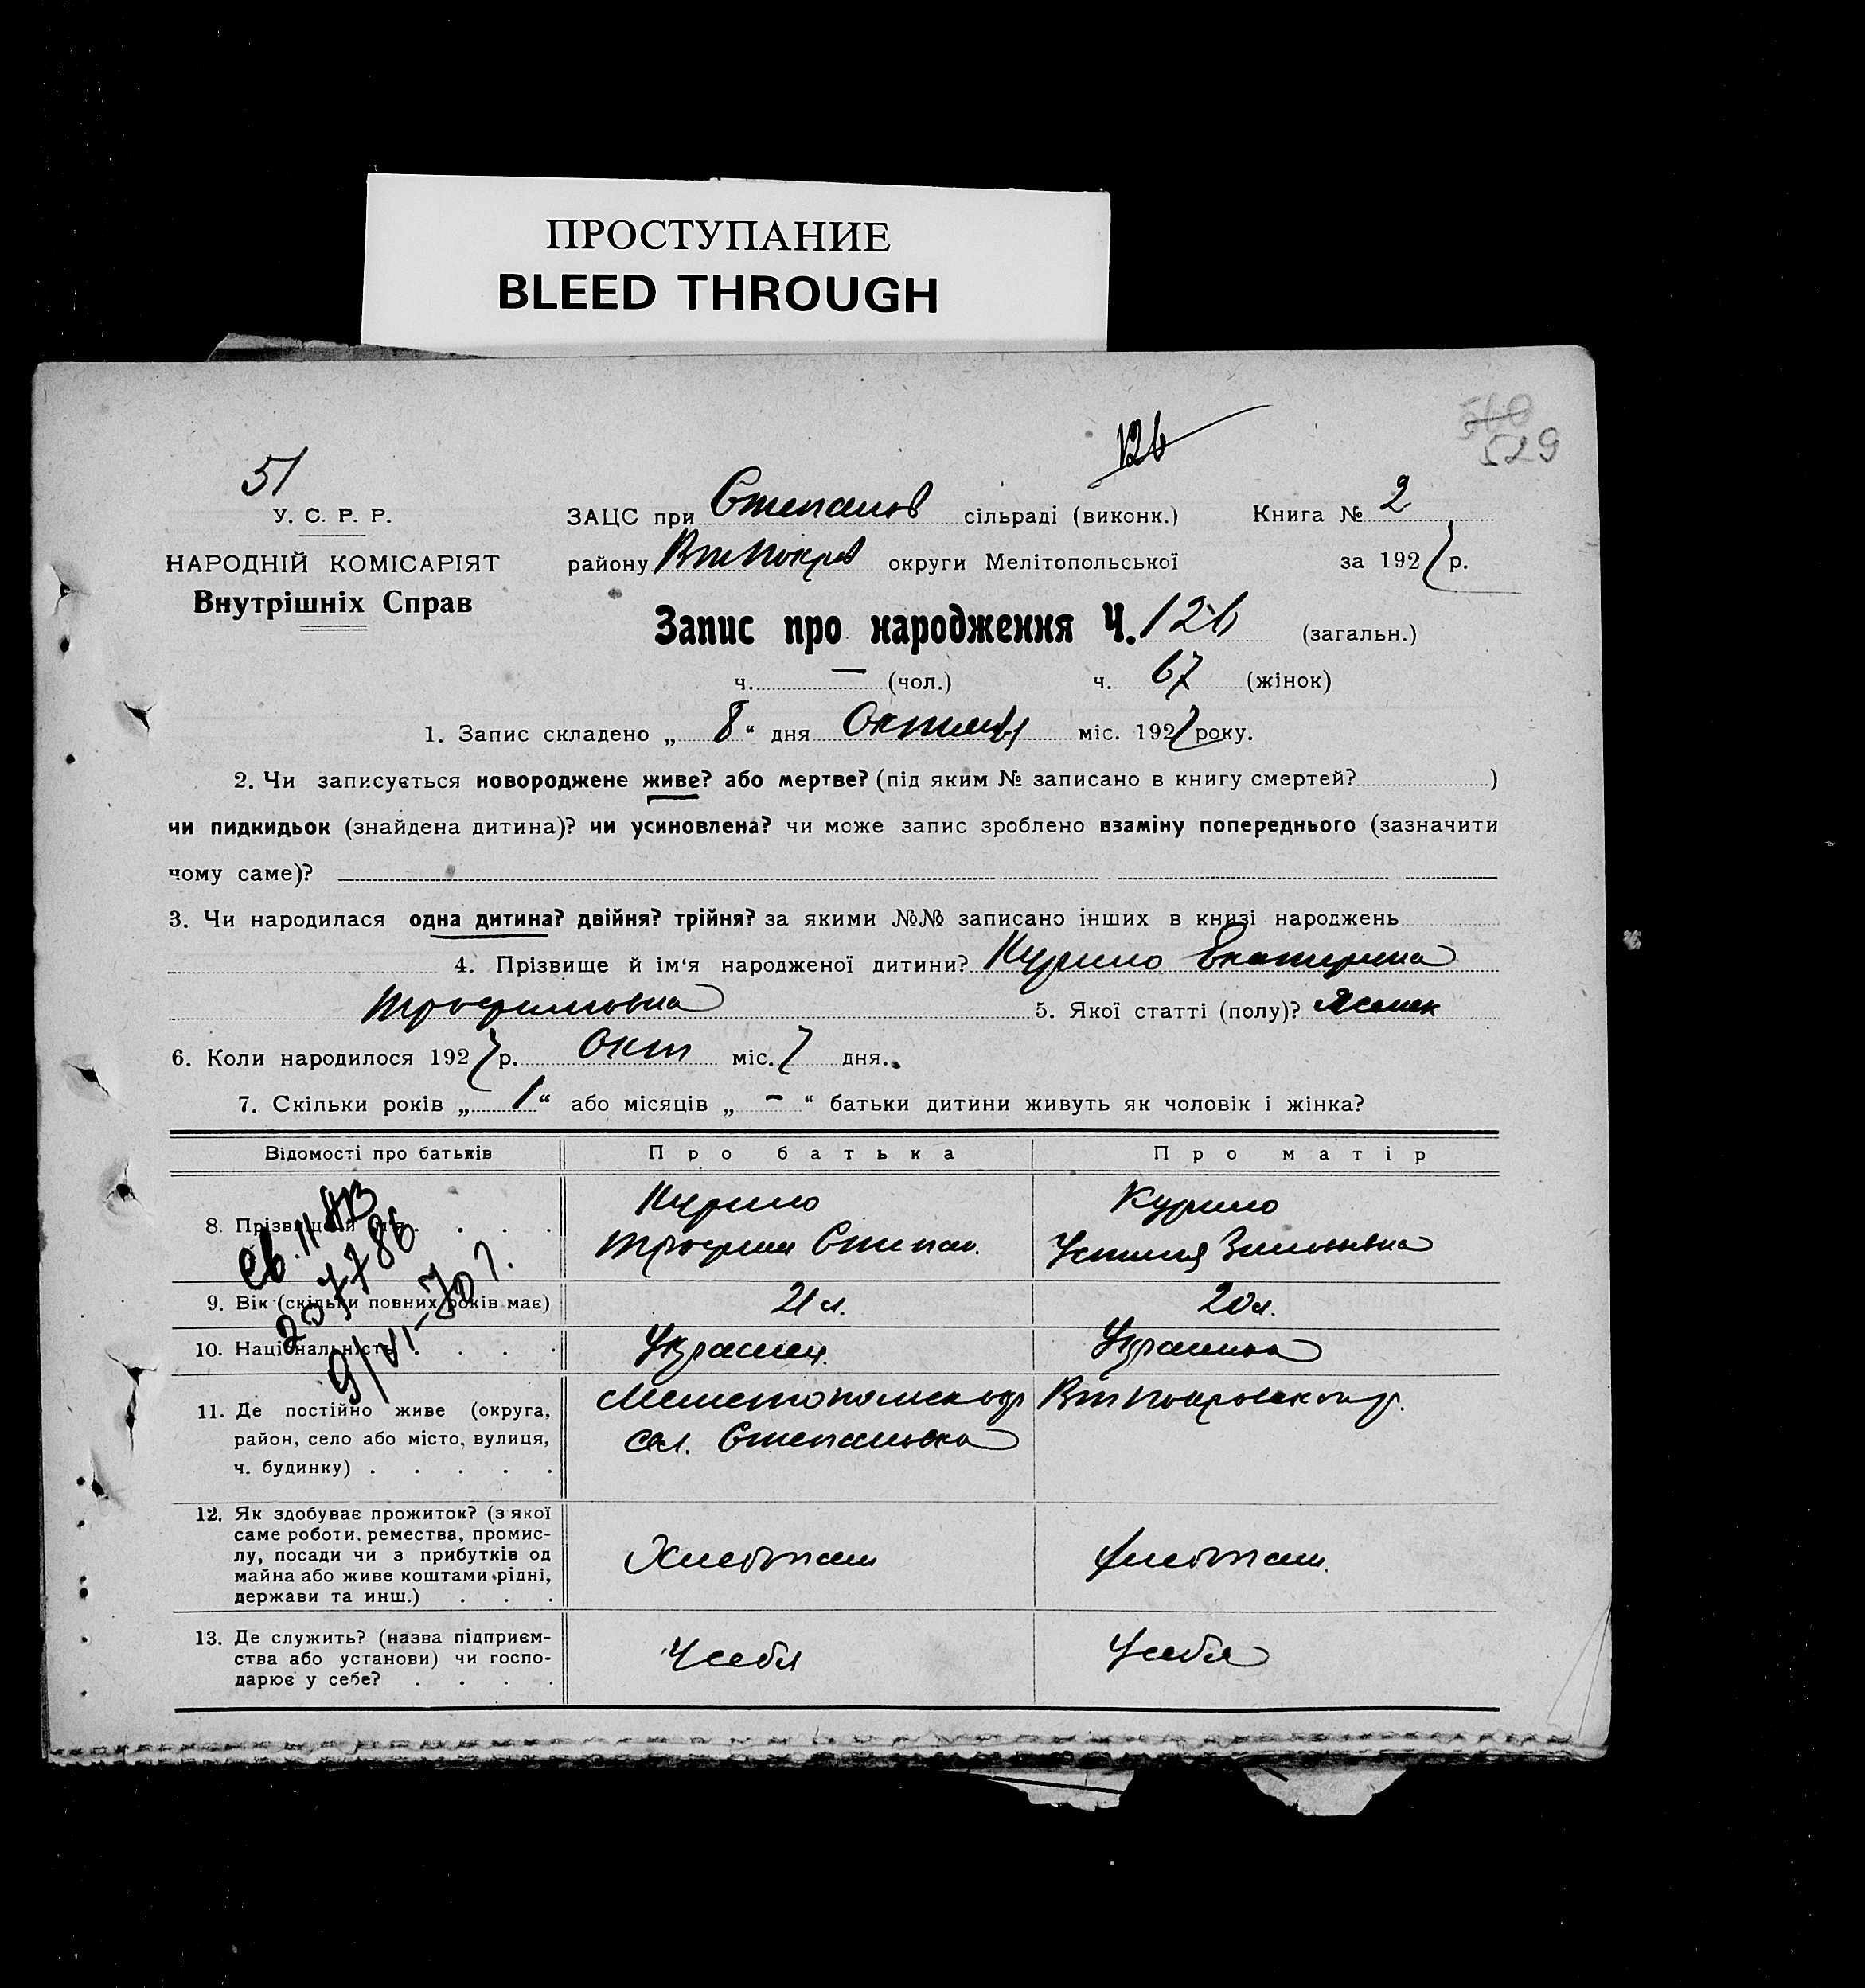 ПРОСТУПАНИЕ
BLEED THROUGH
126
560
529
51
У. С. Р. Р.
НАРОДНІЙ КОМІСАРІЯТ
Внутрішніх Справ
ЗАЦС при Степанов сільраді (виконк.) Книга № 2
району Втпокров округи Мелітопольської за 1927 р.
Запис про народження Ч. 126 (загальн.)
ч. — (чол.) ч. 67 (жінок)
1. Запис складено „ 8 “ дня Октября міс. 1927 року.
2. Чи записується новороджене живе? або мертве? (під яким № записано в книгу смертей? )
чи пидкидьок (знайдена дитина)? чи усиновлена? чи може запис зроблено взаміну попереднього (зазначити
чому саме)?
3. Чи народилася одна дитина? двійня? трійня? за якими №№ записано інших в книзі народжень
4. Прізвище й ім‘я народженої дитини? Курило Екатерина
Трофимовна 5. Якої статті (полу)? Женск
6. Коли народилося 1927 р. Окт міс. 7 дня.
7. Скільки років „ 1 “ або місяців „ – “ батьки дитини живуть як чоловік і жінка?
Відомості про батьків Про батька Про матір
8. Прізвище й ім‘я . . . . Курило Трофим Степан. Курило Устиния Зиновьевна
9. Вік (скільки повних років має) 21 л. 20 л.
10. Національність . . . . Украинец. Украинка
11. Де постійно живе (округа, район, село або місто, вулиця, ч. будинку) . . . . . Мелитопольск окр Втпокровск р. сел. Степановка
12. Як здобуває прожиток? (з якої саме роботи, ремества, промислу, посади чи з прибутків од майна або живе коштами рідні, держави та инш.) . . . Хлебопаш хлебопаш.
13. Де служить? (назва підприємства або установи) чи господарює у себе? . . . . У себя У себя
св. II АВ
207786
9/VI-70 г.